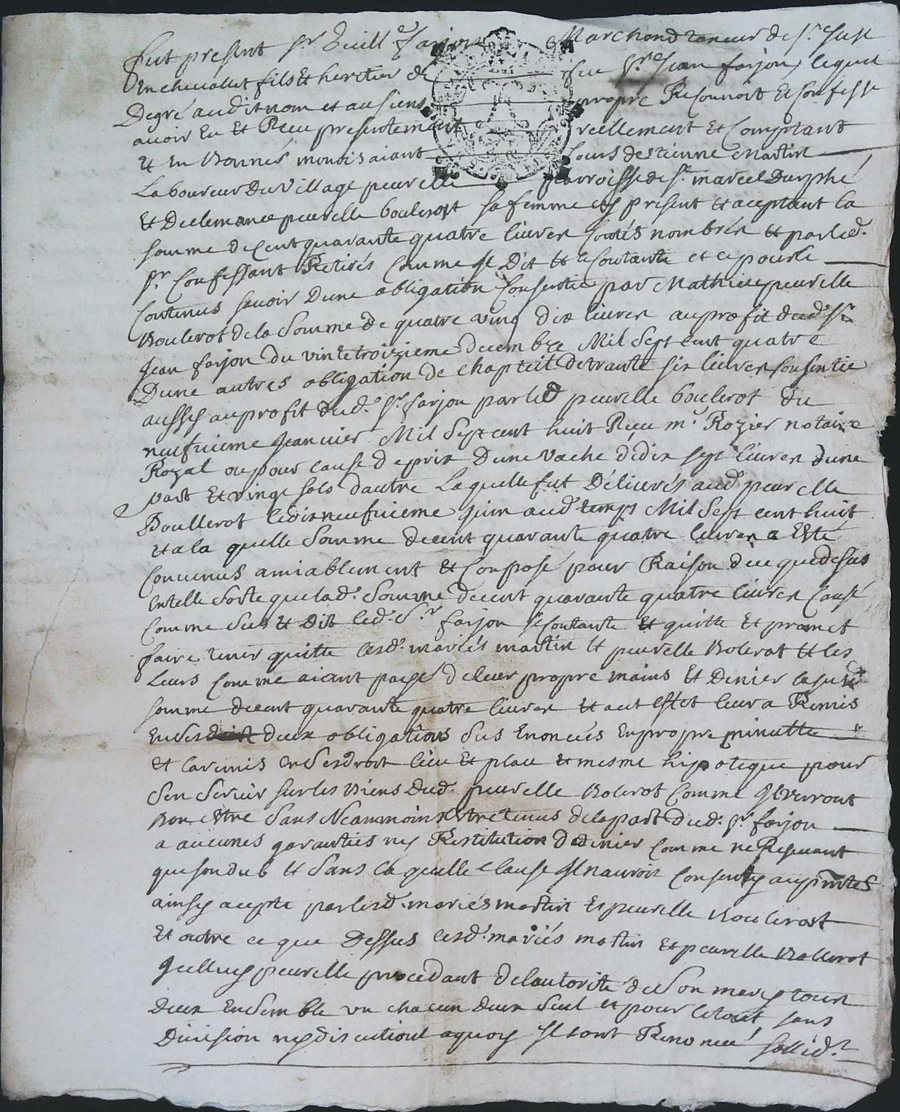 fut present sr Guill farjon Marchand taneur de st Just
En chevalet fils Et heritier de feu sr Jean farjon, lequel
De gré audit nom et au sien propre Reconnoit Et Confesse
avoir Eu Et Receu presentement reellement Et Comptant
Et En Bonnes monois aiant Cours destienne Martin
La boureur du Village peurelle parroisse de st marcel Durphé
Et De clemance peurelle boulerot sa femme present et aceptant la
somme de Cent quarante quatre livres Contés nombrés et par led.
sr Confessant Retirés Comme Il Dit Et se Contante et ce pour le
Contenus savoir Dune obligation Consentie par Mathieu peurelle
Boulerot de la Somme de quatre ving dix livres au profit dud. sr
Jean farjon du vintetroizieme decembre Mil Sept Cent quatre
Dune autres obligation de chapteil de trante six livres Consentie
aussy au profit dud. sr farjon par led peurelle boulerot du
neufvieme Janvier Mil Sept cent huit Receu me Rozier notaire
Royal ou pour cause de prix dune vache de dix sept livres dune
part Et vingt solz dautre Laquelle fut Delivrés aud. peurelle
Boullerot le dixneufvieme Juin aud. temps Mil Sept cent huit
Et a la quelle Somme de cent quarante quatre livres a Esté
Convenus amiablement Et Composé pour Raison de ce que dessus
En telle sorte que lad. Somme de cent quarante quatre livres Causé
Comme Sus Et Dit led. Sr farjon se Contante Et quitte Et promet
faire tenir quitte lesd. mariés martin Et peurelle Bolerot Et les
Leurs Comme aiant payé de leur propre mains Et denier lasusd.
somme de cent quarante quatre livres Et a cet Effet leur a Remis
Ensemble deux obligations Sus Enoncés En propre minutte
Et Les a mis En Ses droit lieu Et place Et mesme hipoteque pour
Sen Servir sur les Biens dud. peurelle Bolerot Comme Ils verront
Bon Estre Sans Neammoins Estre tenus de la part dud. sr farjon
a aucunes garanties ny Restitution de denier Comme ne Recevant
que son dub Et Sans la quelle Clause Il nauroit Consenty au pñtes
ainsy acepté par lesd. mariés martin Et peurelle Boulerot
Et outre ce que Dessus lesd. mariés martin Et peurelle Bollerot
Icelluy peurelle procedant de lautorité de Son mary tous
deux Ensemble un chacun deux Seul et pour le tout sans
Division ny discution a quoy Ils ont Renoncé solid.t